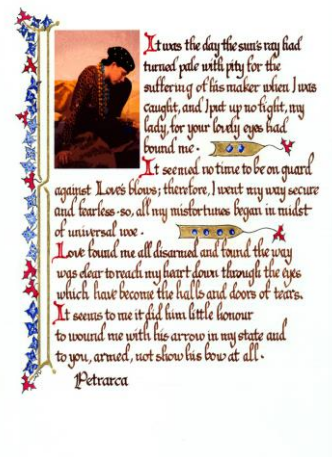 It was the day the sun's ray had
turned pale with pity for the
suffering of his maker when I was
caught, and I put up no fight, my
lady, for your lovely eyes had
bound me.
It seemed no time to be on guard
against Love's blows; therefore, I went my way secure
and fearless-so, all my misfortunes began in midst
of universal woe.
Love found me all disarmed and found the way
was clear to reach my heart down through the eyes
which have become the halls and doors of tears.
It seems to me it did him little honour
to wound me with his arrow in my state and
to you, armed, not show his bow at all.
Petrarca